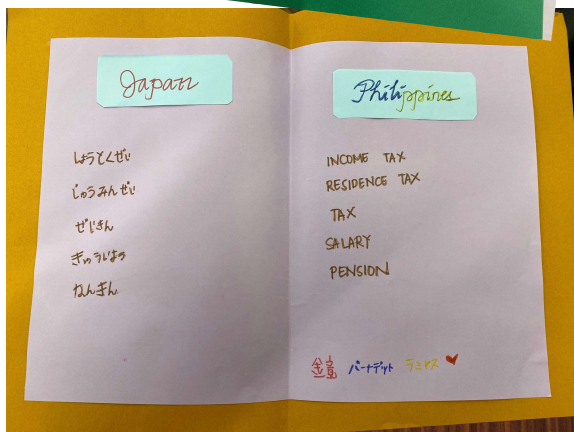 Japan
しょうとくぜい
じゅうみんぜい
ぜいきん
きゅうりょう
ねんきん
Philippines
INCOME TAX
RESIDENCE TAX
TAX
SALARY
PENSION
バーナデット